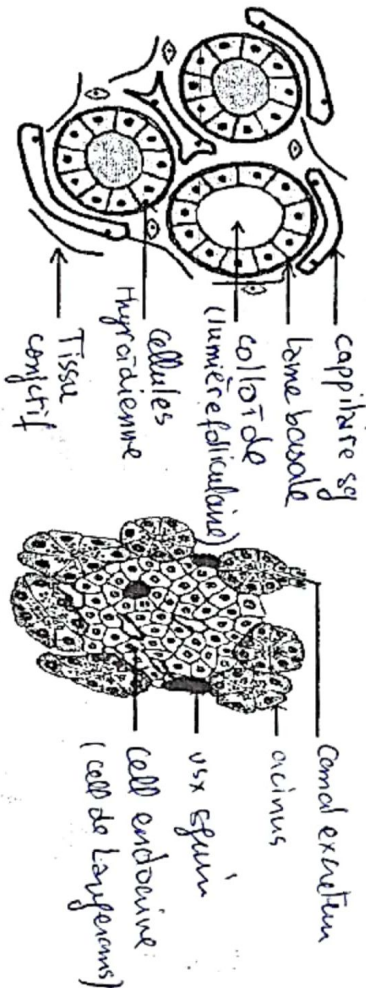 cappilaire sg
lame basale
colloïde
(lumière folliculaire)
cellules
thyroïdienne
Tissu
conjctif
canal excréteur
acinus
vsx sguin
cell endocrine
(cell de Langerans)